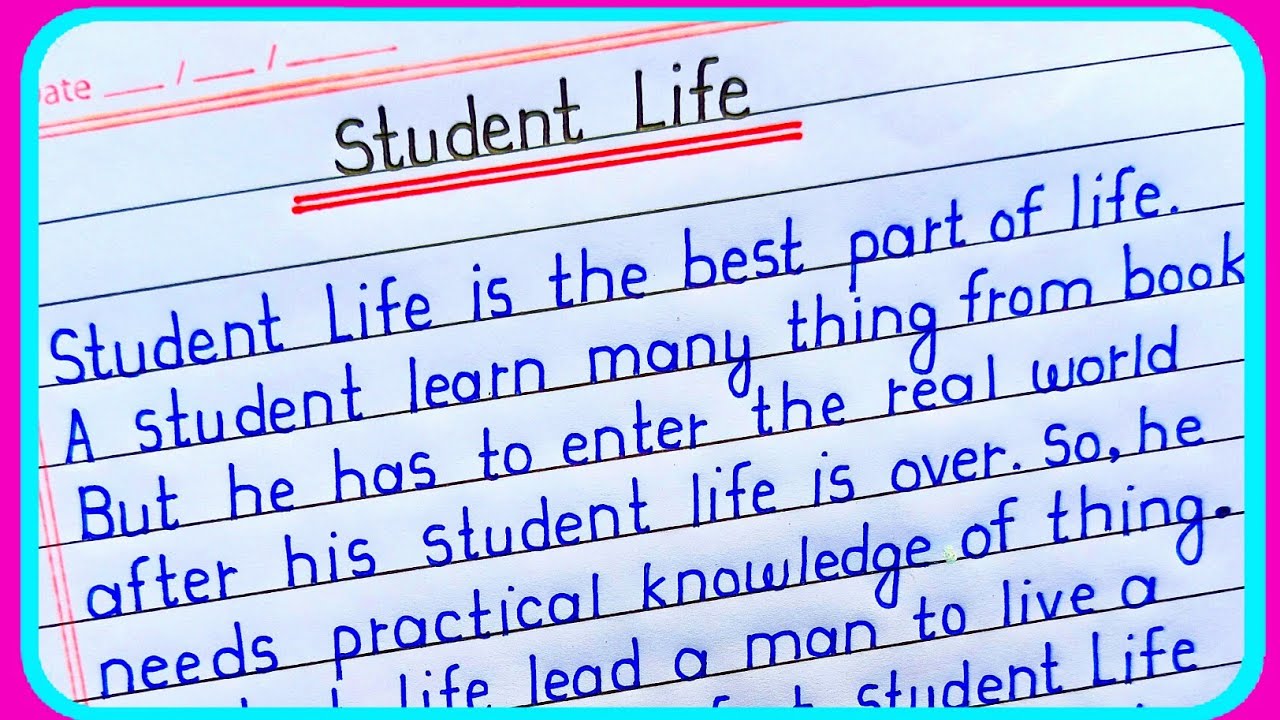 ate ___ / ___ / _____
Student Life
Student Life is the best part of life.
A student learn many thing from book
But he has to enter the real world
after his student life is over. So, he
needs practical knowledge of thing.
life lead a man to live a
student Life